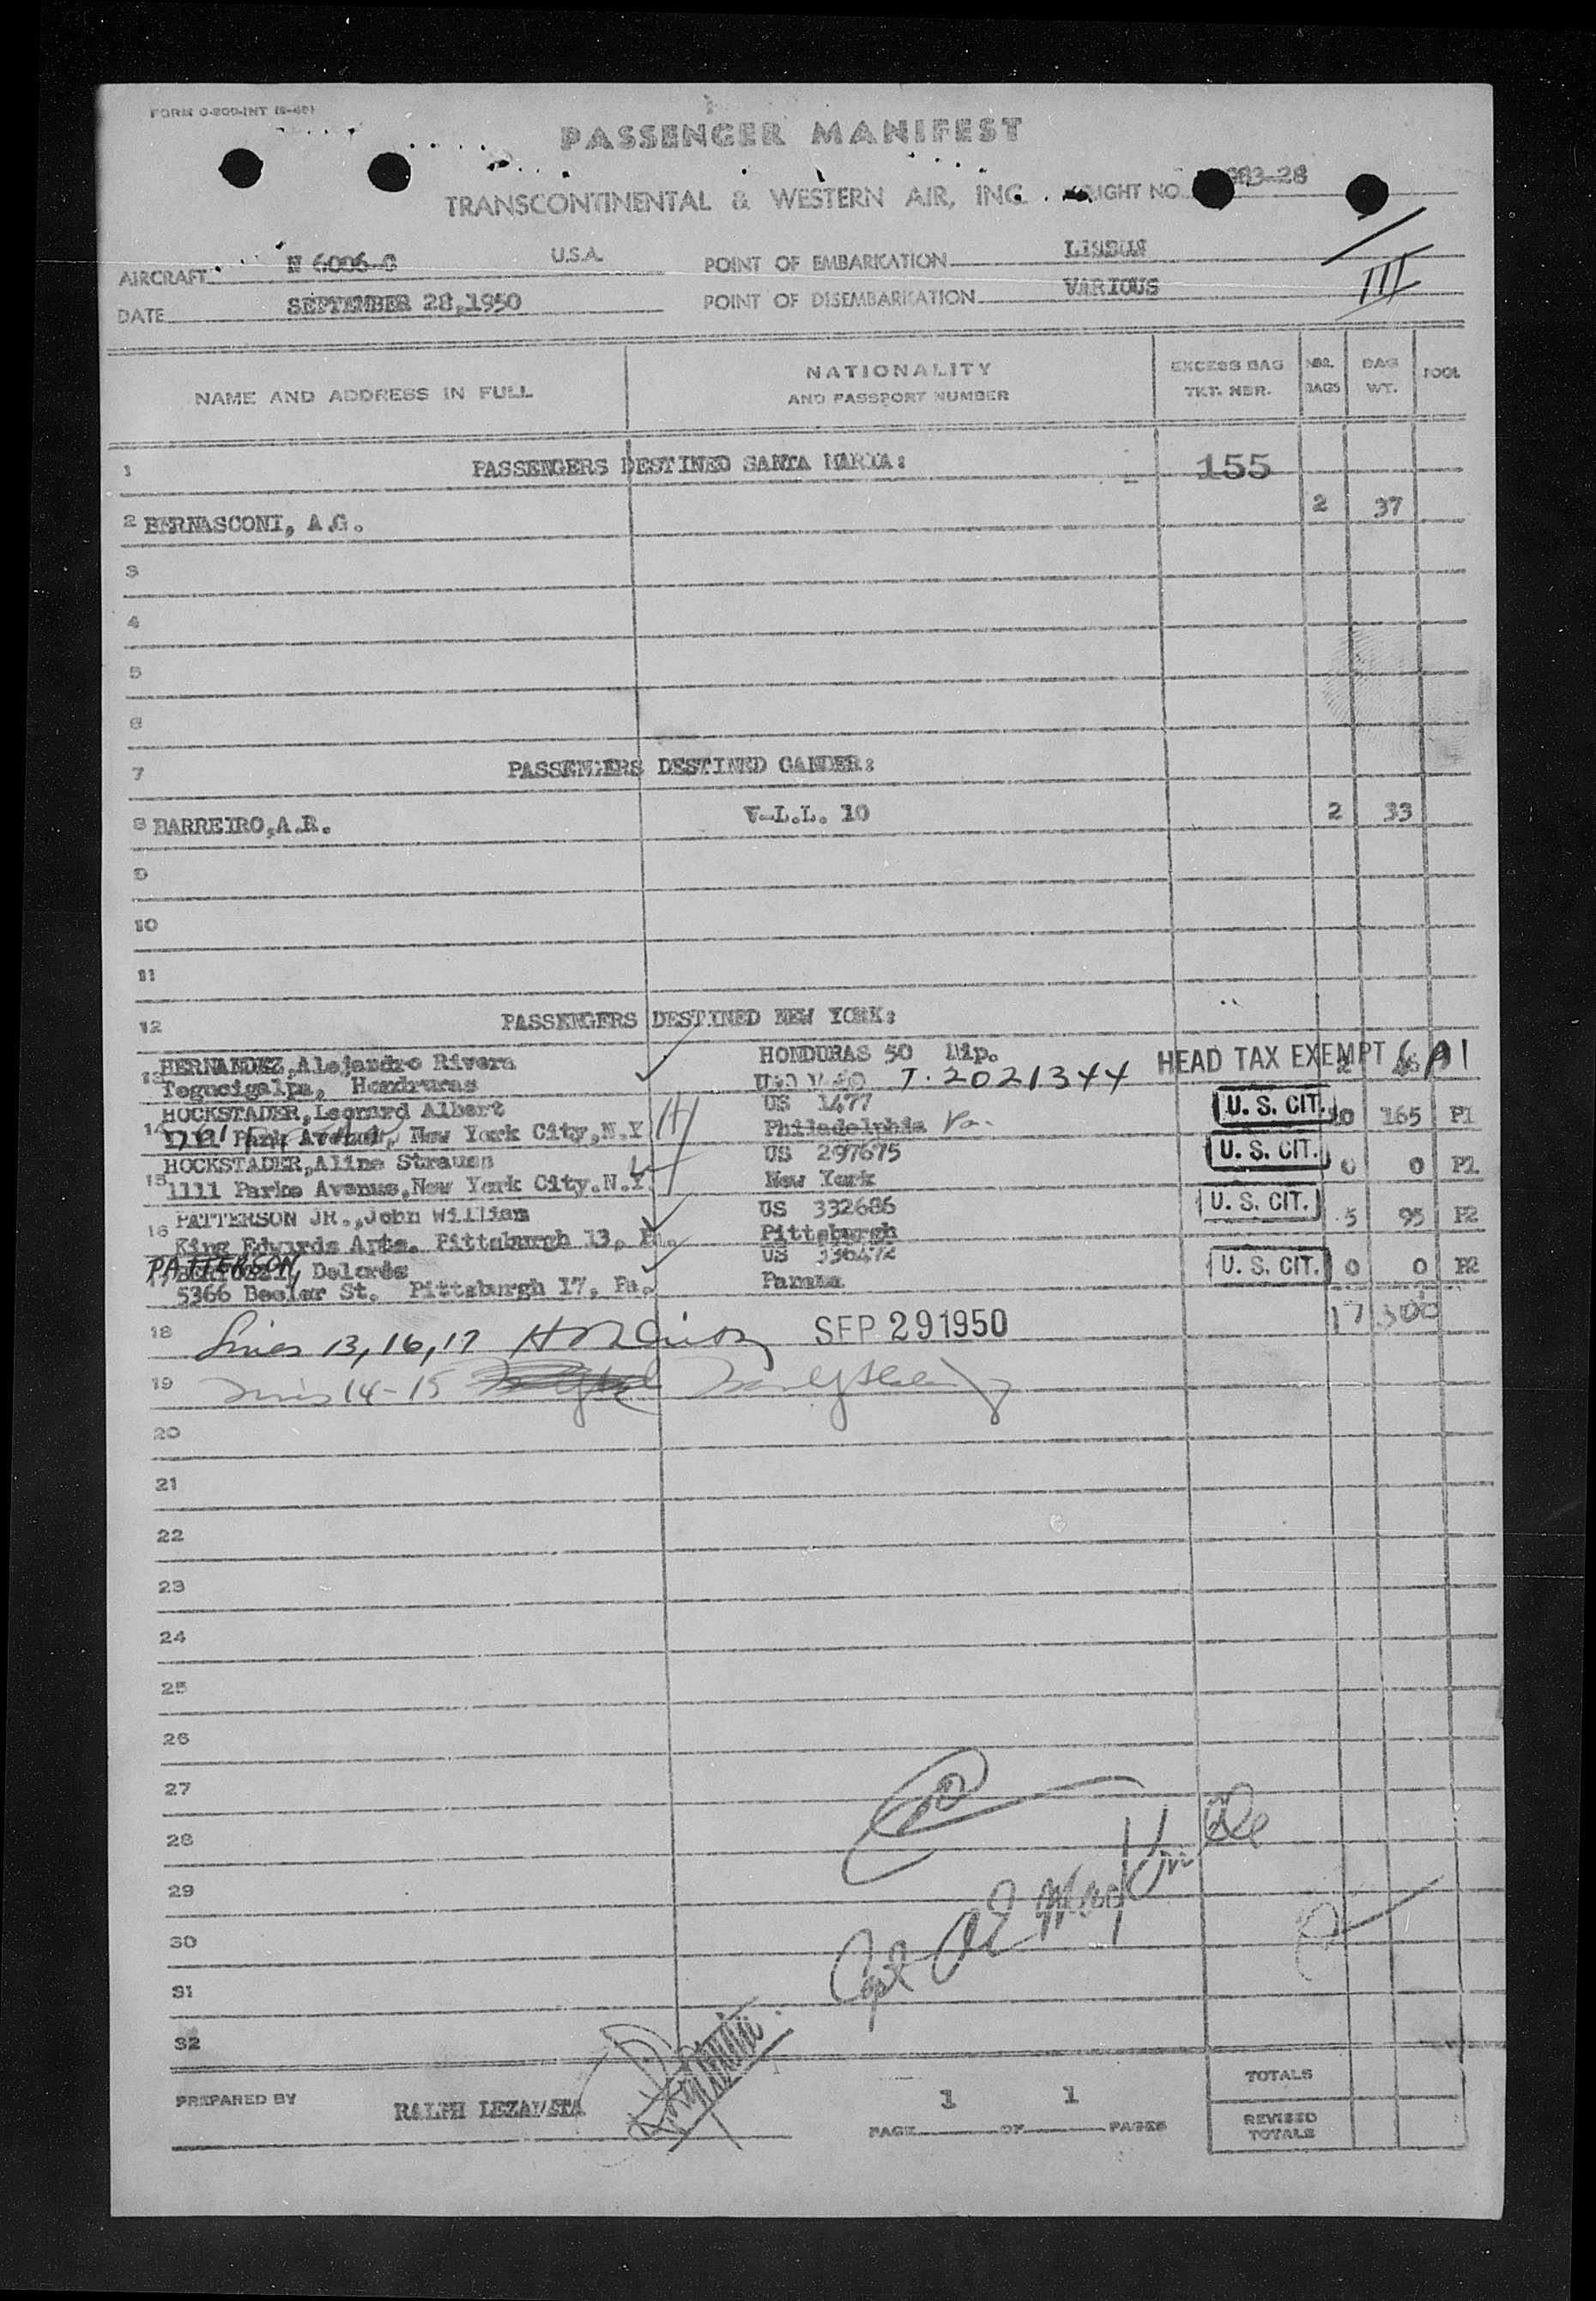 FORM 0-200-INT
PASSENGER MANIFEST
TRANSCONTINENTAL & WESTERN AIR, INC. FLIGHT NO. 983-28
AIRCRAFT N 6006-C U.S.A. POINT OF EMBARKATION LISBON
DATE SEPTEMBER 28,1950 POINT OF DISEMBARKATION VARIOUS
III
NAME AND ADDRESS IN FULL
NATIONALITY AND PASSPORT NUMBER
EXCESS BAG TKT. NBR.
NBR. BAGS
BAG WT.
POOL
1 PASSENGERS DESTINED SANTA MARIA: 155
2 BERNASCONI, A.G. 2 37
3
4
5
6
7 PASSENGERS DESTINED GANDER:
8 BARREIRO,A.R. V-L.L. 10 2 33
9
10
11
12 PASSENGERS DESTINED NEW YORK:
HERNANDEZ,Alejandro Rivera HONDURAS 50 Dip.
13 Tegucigalpa, Hondruras T-2021344 HEAD TAX EXEMPT
HOCKSTADER,Leonard Albert US 1477 U. S. CIT. 10 165 P1
14 Park Avenue, New York City,N.Y Philadelphia Pa.
HOCKSTADER,Aline Strauss US 297675 U. S. CIT. 0 0 P1
15 1111 Parke Avenue,New York City.N.Y. New York
PATTERSON JR.,John William US 332686 U. S. CIT. 5 95 P2
16 King Edwards Apts. Pittsburgh 13, Pa. Pittsburgh
PATTERSON, Delores US 336472 U. S. CIT. 0 0 P2
17 5366 Beeler St. Pittsburgh 17, Pa. Panama
17 300
18 Lines 13,16,17 SEP 29 1950
19 14-15
20
21
22
23
24
25
26
27
28
29
30
31
32
Capt
PREPARED BY RALPH
PAGE 1 OF 1 PAGES
TOTALS
REVISED TOTALS